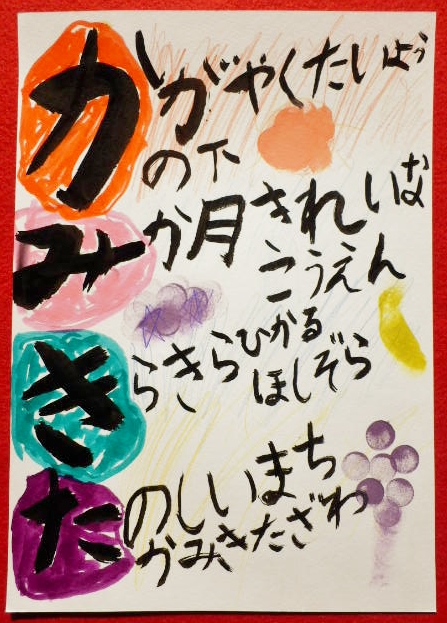 かがやくたいよう
の下
みか月きれいな
こうえん
きらきらひかる
ほしぞら
たのしいまち
かみきたざわ